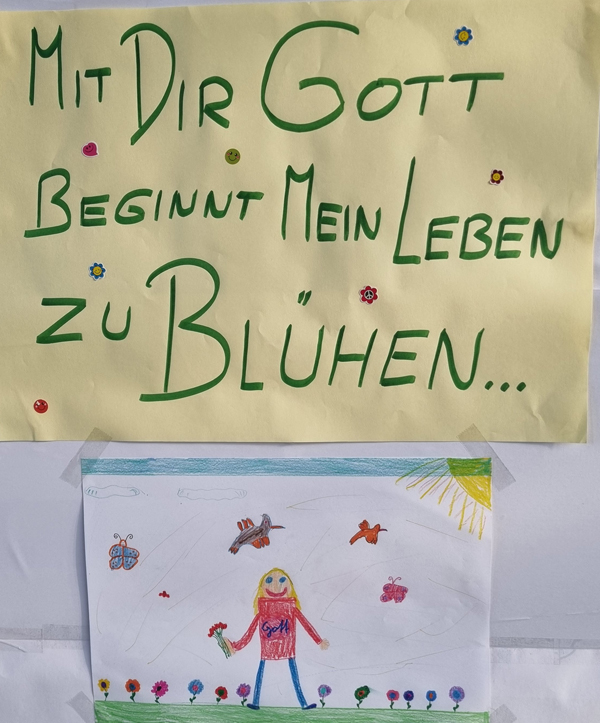 MIT DIR GOTT
BEGINNT MEIN LEBEN
ZU BLÜHEN...
Gott